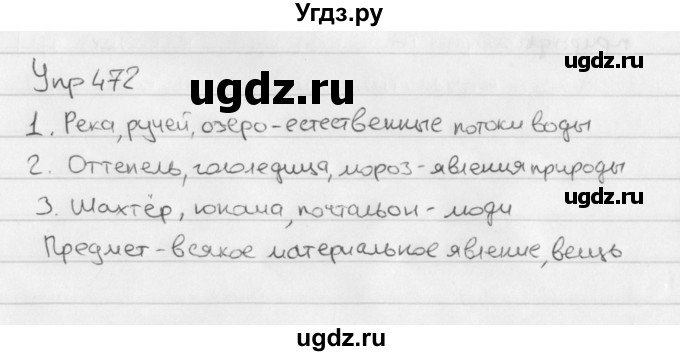 Угдз.ру
Упр 472
ugdz.ru
ugdz.ru
1. Река, ручей, озеро-естественные потоки воды
2. Оттепель, гололедица, мороз-явления природы
3. Шахтёр, юноша, почтальон - люди
Предмет-всякое материальное явление, вещь
ugdz.ru
ugdz.ru